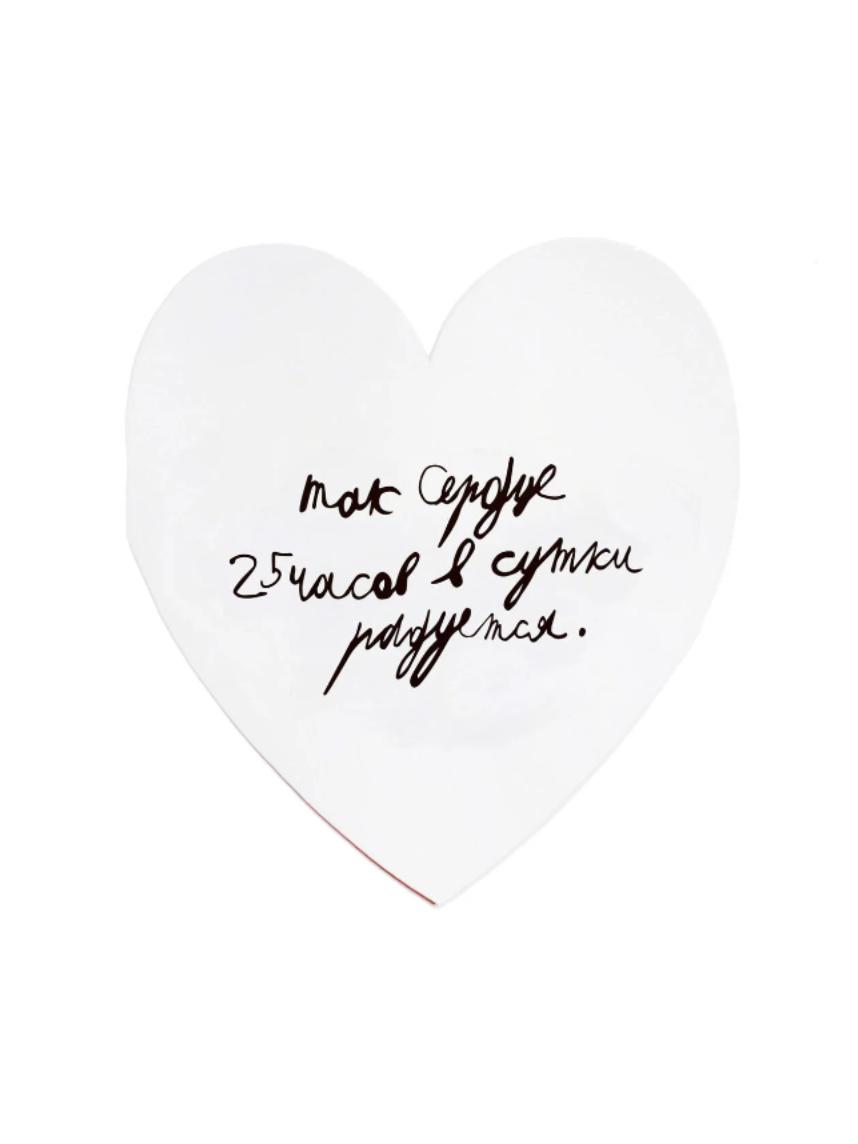 так Сердце
25 часов в сутки
радуется.